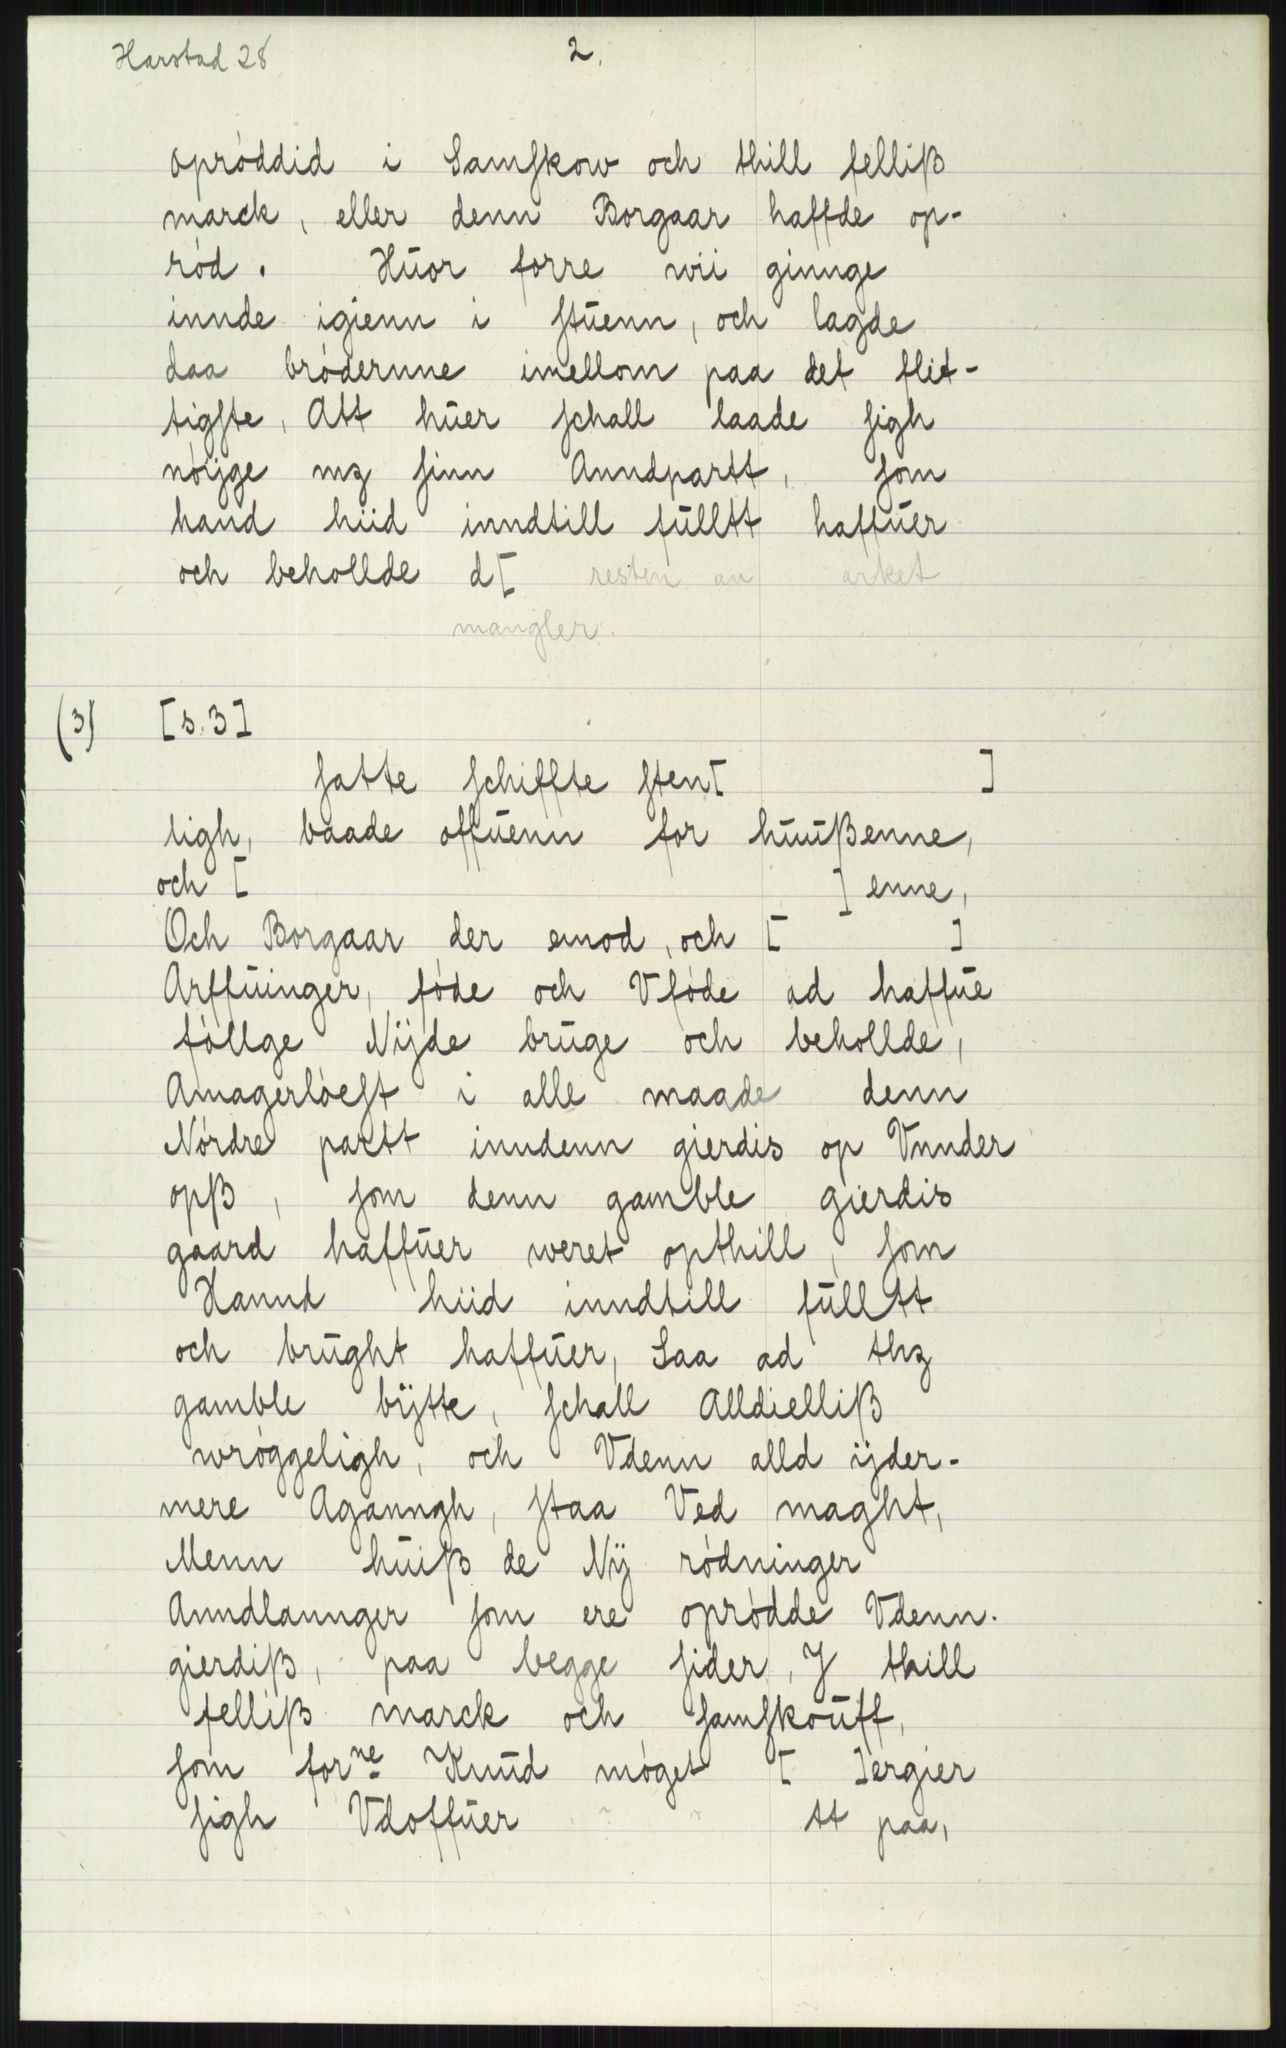 Harstad 28
2.
oprøddid i Samskow och thill felliß
marck, eller denn Borgaar haffde op-
rød. Huor forre wii ginnge
innde igienn i stuenn, och lagde
daa brødernne imellom paa det flit-
tigste, Att huer schall laade sigh
nøijge mz sinn Anndpartt, som
hand hiid inndtill fulltt haffuer
och behollde d[ resten av arket
mangler.
(3) [s. 3]
satte schiffte sten[ ]
ligh, baade offuenn for huußenne,
och [ ] enne,
Och Borgaar der emod, och [ ]
Arffuinger, føde och Vføde ad haffue
føllge Nijde bruge och behollde,
Amagerløest i alle maade denn
Nørdre partt inndenn gierdis op Vnnder
opß, som denn gamble gierdis
gaard haffuer weret opthill, som
Hannd hiid inndtill fulltt
och brught haffuer, Saa ad thz
gamble bijtte, schall Alldielliß
wrøggeligh, och Vdenn alld ijder-
mere Aganngh, staa Ved maght,
Menn huiß de Nij rødninger
Anndlannger som ere oprødde Vdenn
gierdiß, paa begge sider, J thill
felliß marck och samskouff,
som forne Knud møget [ ]ergier
sigh Vdoffuer tt paa,